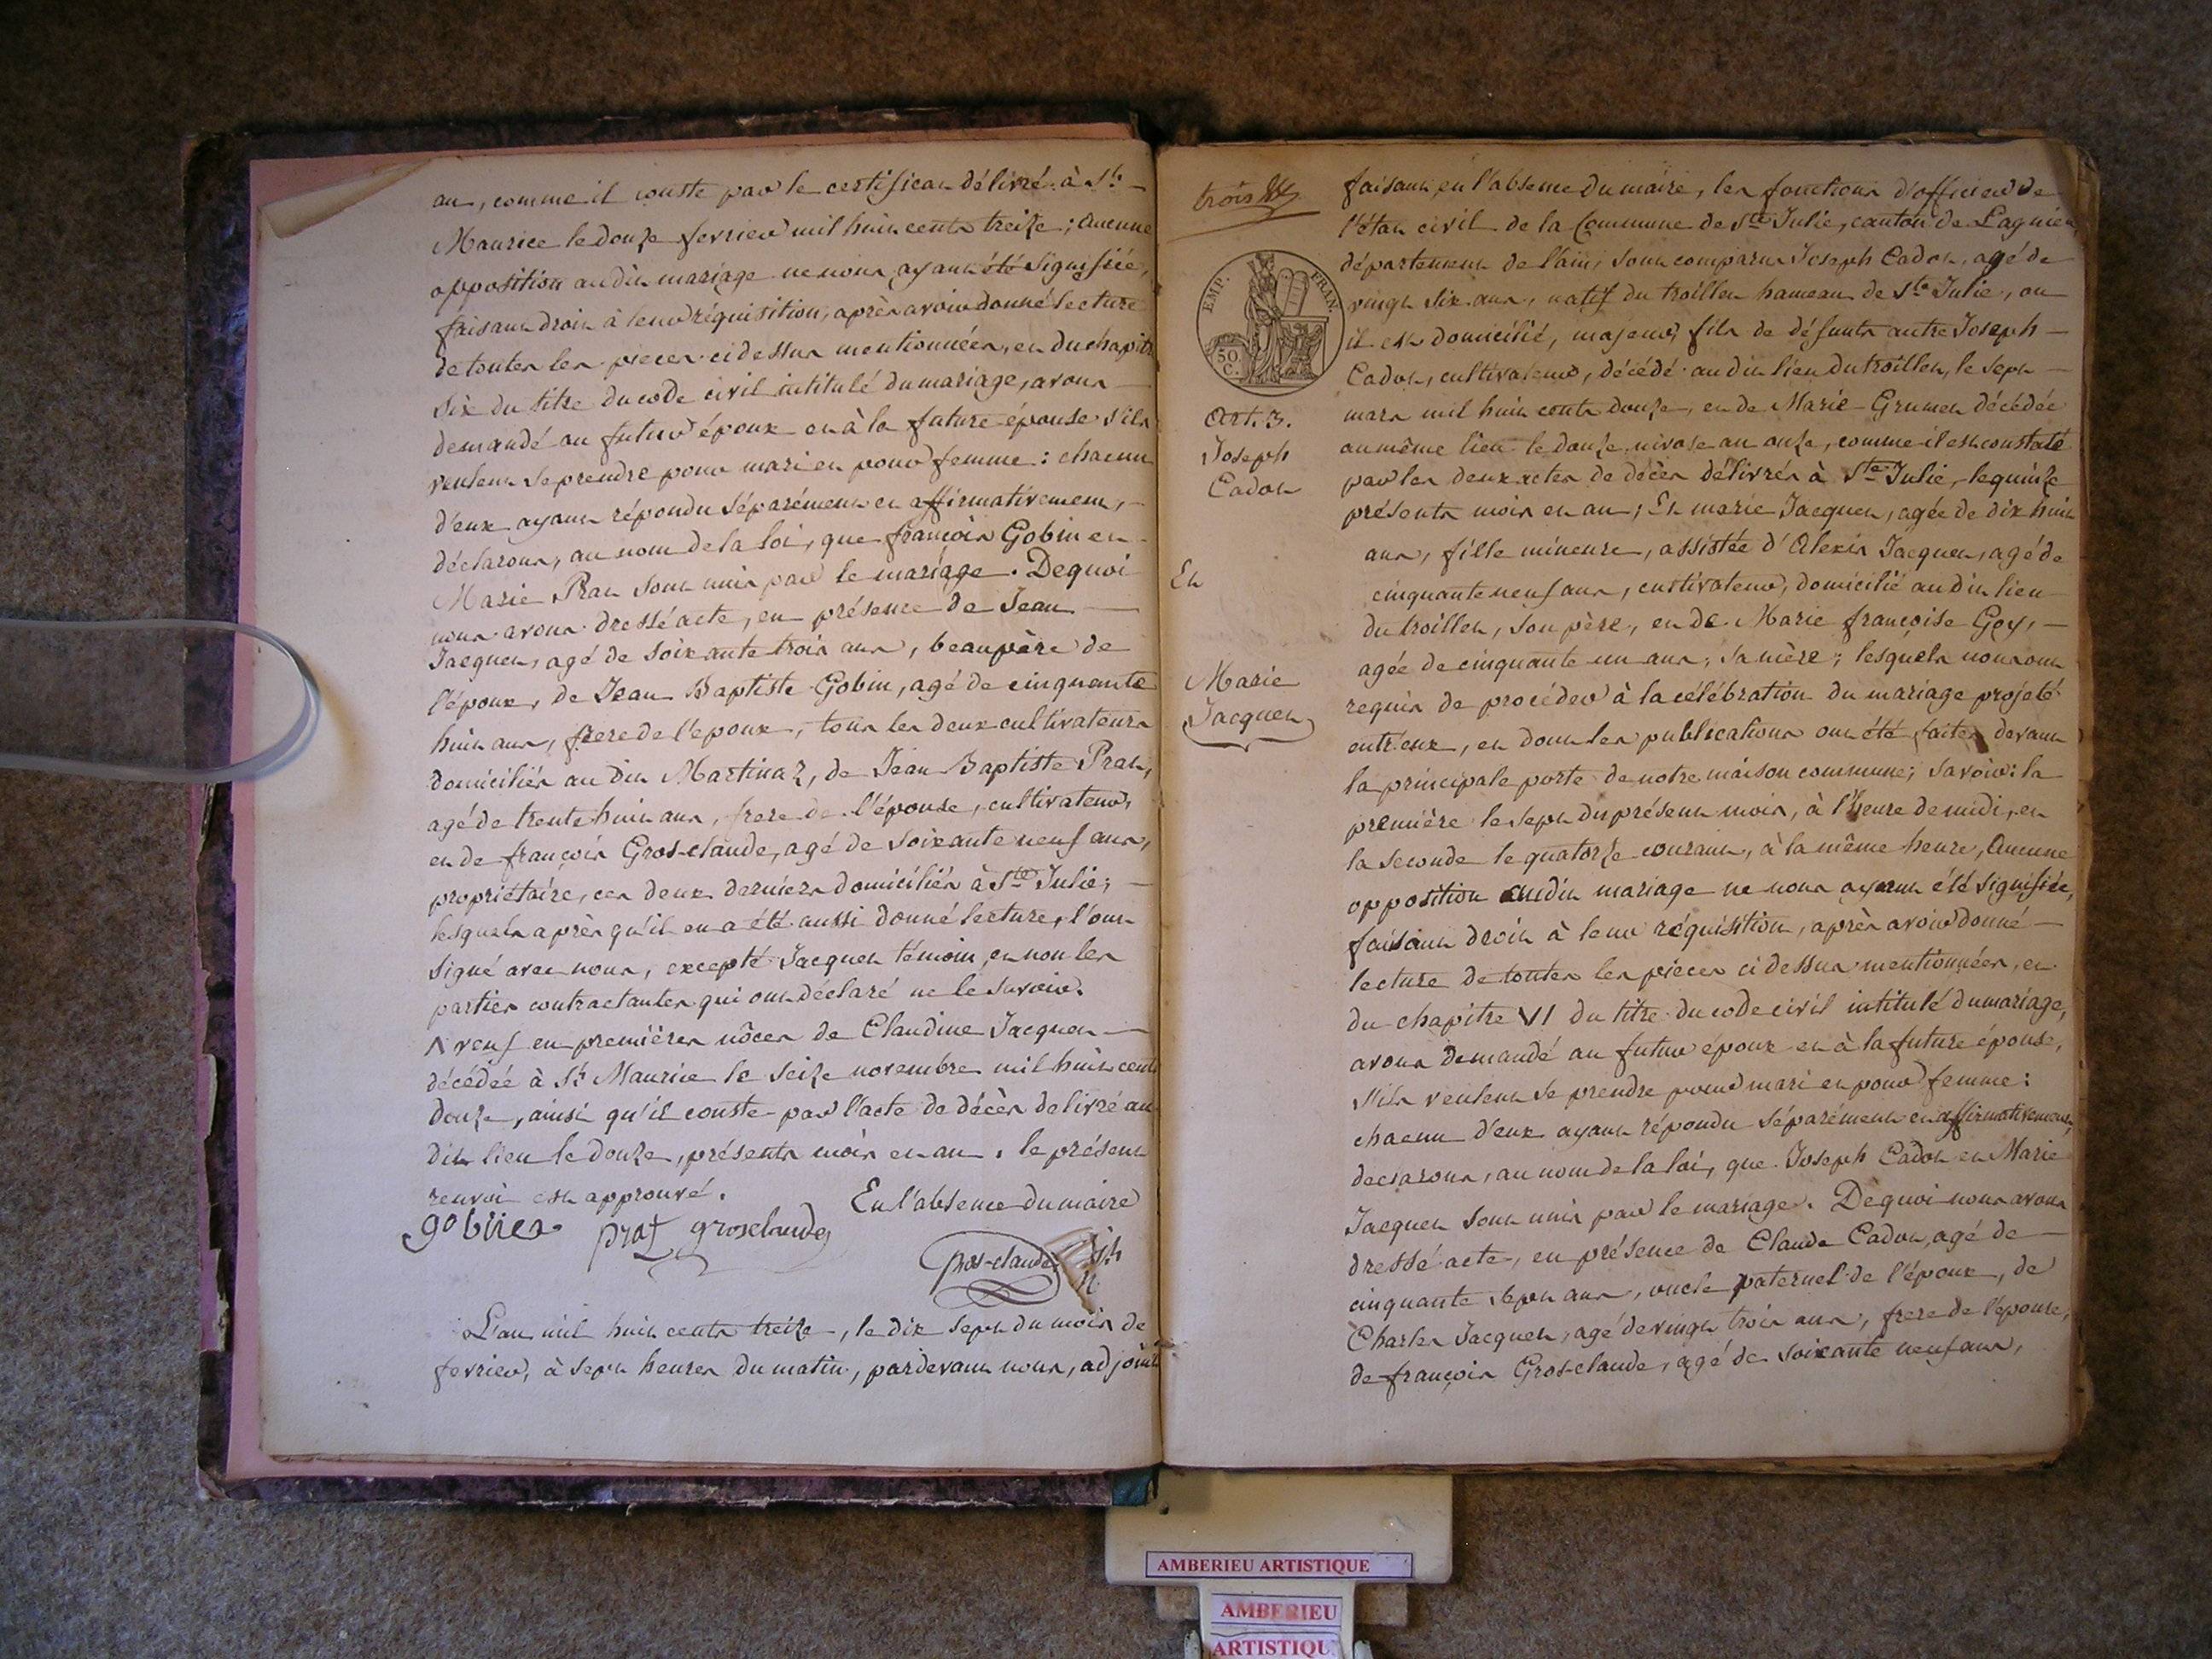 an, comme il conste par le certificat délivré à St
Maurice le douze fevrier mil huit cents treize ; Aucune
opposition audit mariage ne nous ayant été signifiée,
faisant droit à leur réquisition, après avoir donné lecture
de toutes les pieces ci dessus mentionnées, et du chapitre
six du titre du code civil intitulé du mariage, avons
demandé au futur époux et à la future épouse s'ils
veulent se prendre pour mari et pour femme : chacun
d'eux ayant répondu séparément et affirmativement,
déclarons, au nom de la loi, que françois Gobin et
Marie Prat sont unis par le mariage. De quoi
nous avons dressé acte, en présence de Jean
Jacquet, agé de soixante trois ans, beaupère de
l'époux, de Jean Baptiste Gobin, agé de cinquante
huit ans, frere de l'epoux, tous les deux cultivateurs
domiciliés au dit Martinaz, de Jean Baptiste Prat,
agé de trente huit ans, frere de l'épouse, cultivateur,
et de françois Gros-claude, agé de soixante neuf ans,
propriétaire, ces deux derniers domiciliés à Ste Julie;
lesquels après qu'il en a été aussi donné lecture, l'ont
signé avec nous, excepté Jacquet témoin, et non les
parties contractantes qui ont déclaré ne le savoir.
veuf en premières nôces de Claudine Jacquet
décédée à St Maurice le seize novembre mil huit cents
douze, ainsi qu'il conste par l'acte de décès delivré au
dit lieu le douze, présents mois et an. le présent
renvoi est approuvé. En l'absence du maire
gobin prat grosclaude
Gros-claude
L'an mil huit cents treize, le dix sept du mois de
fevrier, à sept heures du matin, pardevant nous, adjoint
trois
faisant, en l'absence du maire, les fonctions d'officier de
l'état civil de la Commune de Ste Julie, canton de Lagnieu,
département de l'ain, sont comparus Joseph Cadot, agé de
vingt six ans, natif du troillet hameau de Ste Julie, ou
il est domicilié, majeur, fils de défunts autre Joseph
Cadot, cultivateur, décédé au dit lieu du troillet, le sept
mars mil huit cents douze, et de Marie Grumet décédée
au même lieu le douze nivose an onze, comme il est constaté
par les deux actes de décès délivrés à Ste Julie, le quinze
présents mois et an ; Et marie Jacquet, agée de dix huit
ans, fille mineure, assistée d'Alexis Jacquet, agé de
cinquante neuf ans, cultivateur, domicilié au dit lieu
du troillet, son père, et de Marie françoise Goy,
agée de cinquante un ans, sa mère ; lesquels nous ont
requis de procéder à la célébration du mariage projeté
entr'eux, et dont les publications ont été faites devant
la principale porte de notre maison commune; savoir : la
première le sept du présent mois, à l'heure de midi, et
la seconde le quatorze courant, à la même heure, Aucune
opposition audit mariage ne nous ayant été signifiée,
faisant droit à leur réquisition, après avoir donné
lecture de toutes les pieces ci dessus mentionnées, et
du chapitre VI du titre du code civil intitulé du mariage,
avons demandé au futur époux et à la future épouse,
s'ils veulent se prendre pour mari et pour femme :
chacun d'eux ayant répondu séparément et affirmativement,
declarons, au nom de la loi, que Joseph Cadot et Marie
Jacquet sont unis par le mariage. De quoi nous avons
dressé acte, en présence de Claude Cadot, agé de
cinquante sept ans, oncle paternel de l'époux, de
Charles Jacquet, agé de vingt trois ans, frere de l'épouse,
de françois Gros-claude, agé de soixante neuf ans,
EMP. FRAN.
50
C.
Art. 3.
Joseph
Cadot
Et
Marie
Jacquet
AMBERIEU ARTISTIQUE
AMBERIEU
ARTISTIQU